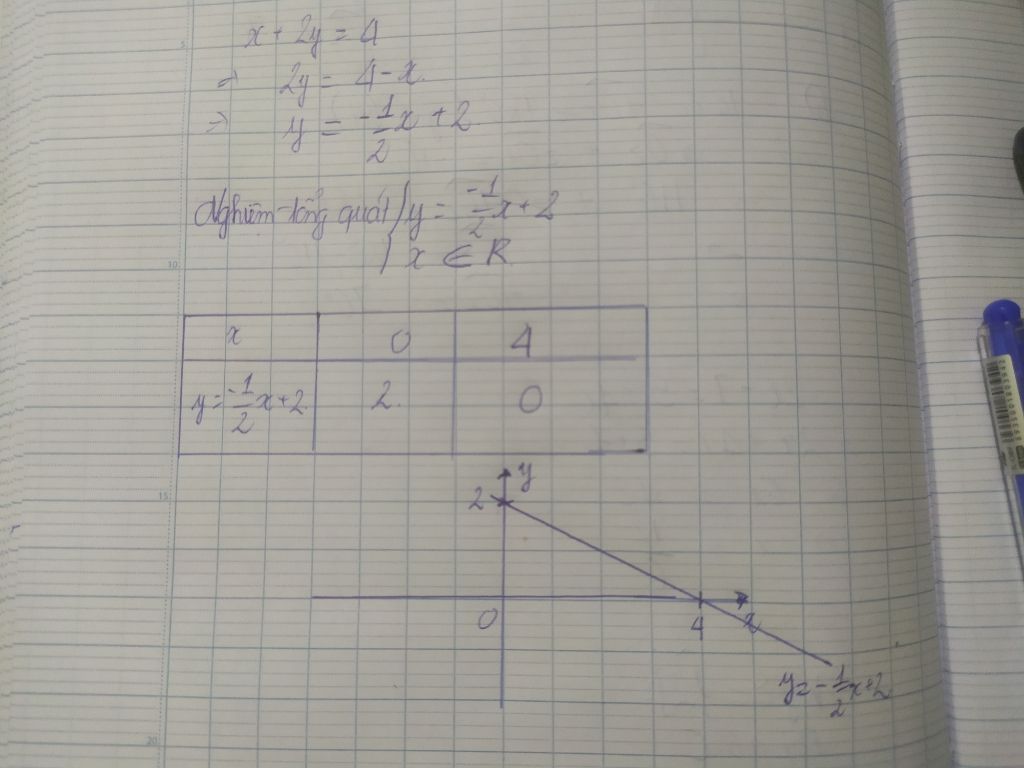 x + 2y = 4
⇒ 2y = 4 - x.
⇒ y = -1/2 x + 2
Nghiệm tổng quát { y = -1/2 x + 2
x ∈ R
x 0 4
y = -1/2 x + 2 2. 0
y
2
0
4 x
y = -1/2 x + 2
5
10
15
20